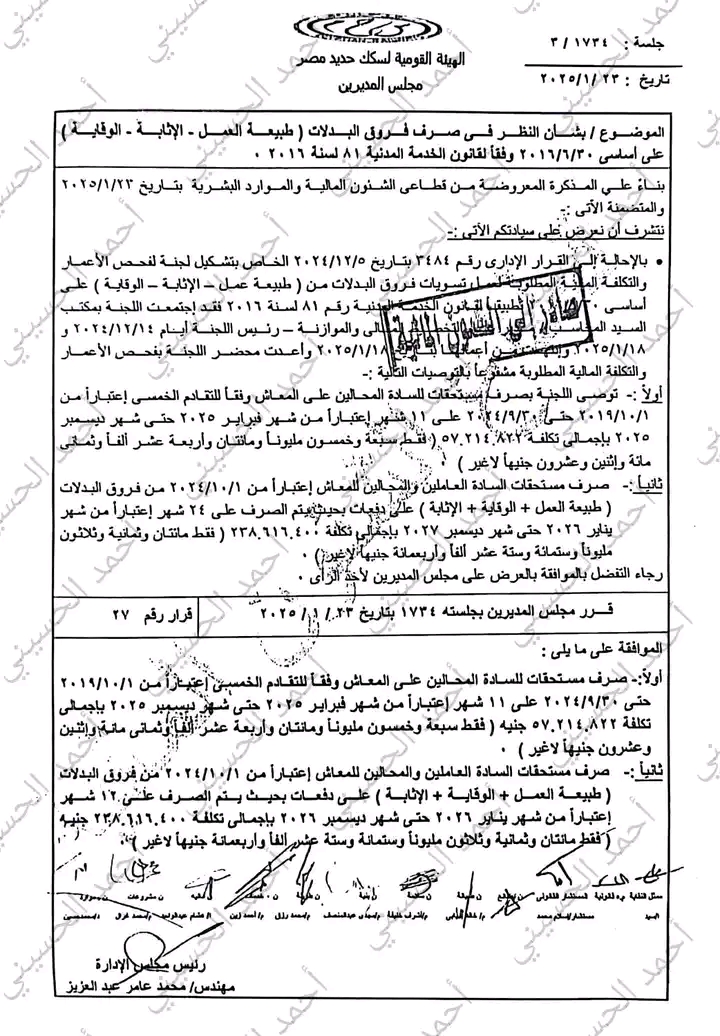 جلسة : ١٧٣٤ / ٣
تاريخ : ٢٣ /١/ ٢٠٢٥
الهيئة القومية لسكك حديد مصر
مجلس المديرين
الموضوع / بشأن النظر فى صرف فروق البدلات ( طبيعة العمل - الإثابة - الوقاية )
على أساسى ٢٠١٦/٦/٣٠ وفقاً لقانون الخدمة المدنية ٨١ لسنة ٢٠١٦ ٠
بناءً علي المذكرة المعروضة من قطاعى الشئون المالية والموارد البشرية بتاريخ ٢٠٢٥/١/٢٣
والمتضمنة الآتى :-
نتشرف أن نعرض على سيادتكم الآتى :-
• بالإحالة إلى القرار الإدارى رقم ٣٤٨٤ بتاريخ ٢٠٢٤/١٢/٥ الخاص بتشكيل لجنة لفحص الأعمار
والتكلفة المالية المطلوبة لعمل تسويات فروق البدلات من ( طبيعة عمل – الإثابة – الوقاية ) على
أساسى تطبيقاً لقانون الخدمة المدنية رقم ٨١ لسنة ٢٠١٦ فقد إجتمعت اللجنة بمكتب
السيد المحاسب / المالى والموازنة – رئيس اللجنة أيام ٢٠٢٤/١٢/١٤ و
٢٠٢٥/١/١٨ وإنتهت من أعمالها ٢٠٢٥/١/١٨ وأعدت محضر اللجنة بفحص الأعمار
والتكلفة المالية المطلوبة مشفوعاً بالتوصيات التالية :-
أولاً :- توصى اللجنة بصرف مستحقات للسادة المحالين على المعاش وفقاً للتقادم الخمسى إعتباراً من
٢٠١٩/١٠/١ حتى ٢٠٢٤/٩/٣٠ على ١١ شهر إعتباراً من شهر فبراير ٢٠٢٥ حتى شهر ديسمبر
٢٠٢٥ بإجمالى تكلفة ٥٧.٢١٤.٨٢٢ ( فقط سبعة وخمسون مليوناً ومائتان وأربعة عشر ألفاً وثمانى
مائة وإثنين وعشرون جنيهاً لاغير ) ٠
ثانياً :- صرف مستحقات السادة العاملين والمحالين للمعاش إعتباراً من ٢٠٢٤/١٠/١ من فروق البدلات
( طبيعة العمل + الوقاية + الإثابة ) على دفعات بحيث يتم الصرف على ٢٤ شهر إعتباراً من شهر
يناير ٢٠٢٦ حتى شهر ديسمبر ٢٠٢٧ بإجمالى تكلفة ٢٣٨.٦١٦.٤٠٠ ( فقط مائتان وثمانية وثلاثون
مليوناً وستمائة وستة عشر ألفاً وأربعمائة جنيهاً لاغير ) ٠
رجاء التفضل بالموافقة بالعرض على مجلس المديرين لأخذ الرأى ٠
قرر مجلس المديرين بجلسته ١٧٣٤ بتاريخ ٢٣ / ١ / ٢٠٢٥
قرار رقم ٢٧
الموافقة على ما يلى :
أولاً:- صرف مستحقات للسادة المحالين على المعاش وفقاً للتقادم الخمسى إعتباراً من ٢٠١٩/١٠/١
حتى ٢٠٢٤/٩/٣٠ على ١١ شهر إعتباراً من شهر فبراير ٢٠٢٥ حتى شهر ديسمبر ٢٠٢٥ بإجمالى
تكلفة ٥٧.٢١٤.٨٢٢ جنيه ( فقط سبعة وخمسون مليوناً ومائتان وأربعة عشر ألفاً وثمانى مائة وإثنين
وعشرون جنيهاً لاغير ) ٠
ثانياً :- صرف مستحقات السادة العاملين والمحالين للمعاش إعتباراً من ٢٠٢٤/١٠/١ من فروق البدلات
( طبيعة العمل + الوقاية + الإثابة ) على دفعات بحيث يتم الصرف على ١٢ شهر
إعتباراً من شهر يناير ٢٠٢٦ حتى شهر ديسمبر ٢٠٢٦ بإجمالى تكلفة ٢٣٨.٦١٦.٤٠٠ جنيه
( فقط مائتان وثمانية وثلاثون مليوناً وستمائة وستة عشر ألفاً وأربعمائة جنيهاً لاغير ) ٠
رئيس مجلس الإدارة
مهندس/ محمد عامر عبد العزيز
أحمد الحسيني